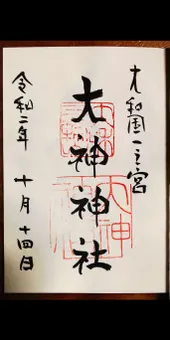 大和国一之宮
大神神社
令和二年 十月 十四日